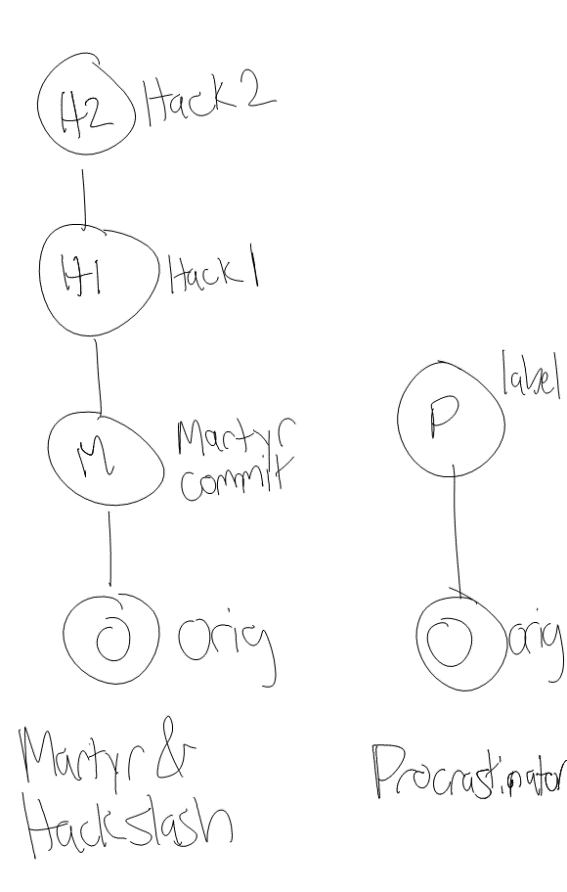 H2 Hack 2
H1 Hack 1
M Martyr
commit
O orig
Martyr &
Hackslash
label
P
O orig
Procrastinator